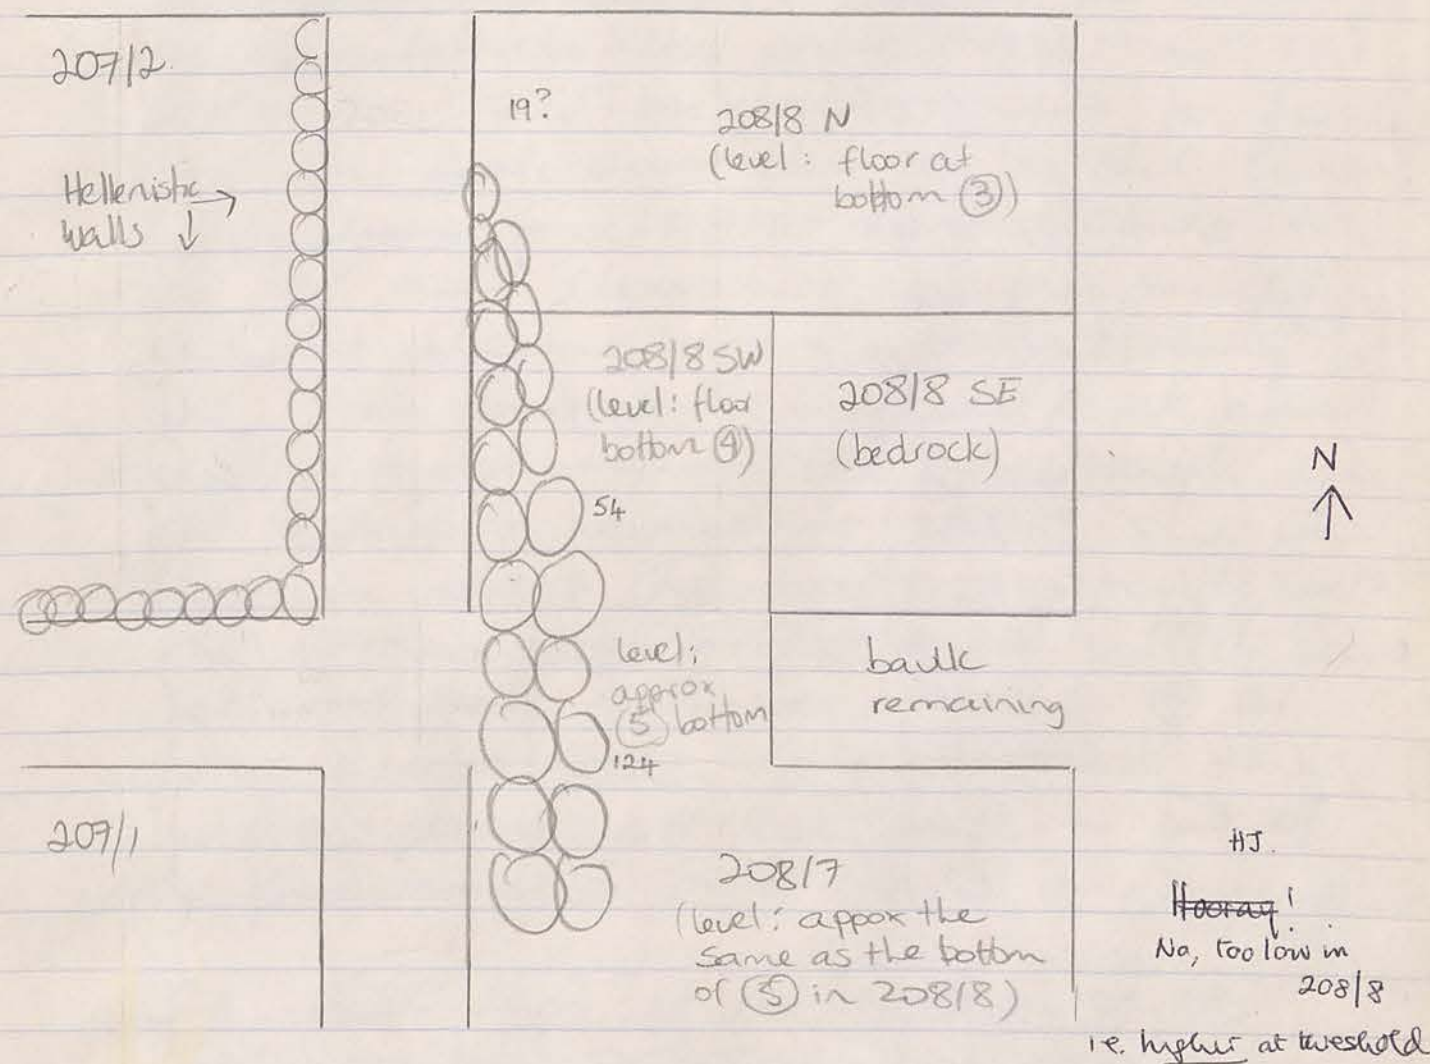 207/2
Hellenistic →
walls ↓
19?
208/8 N
(level: floor at
bottom ③)
208/8 SW
(level: floor
bottom ④)
54
208/8 SE
(bedrock)
N
level:
approx
⑤ bottom
124
baulk
remaining
207/1
208/7
(level: appox the
same as the bottom
of ⑤ in 208/8)
HJ.
Hooray!
No, too low in
208/8
i.e. higher at threshold